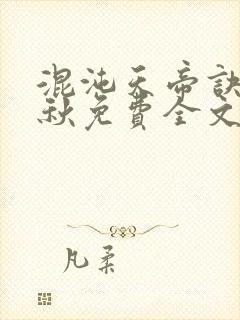 混沌天帝訣
秋免費全文
凡柔